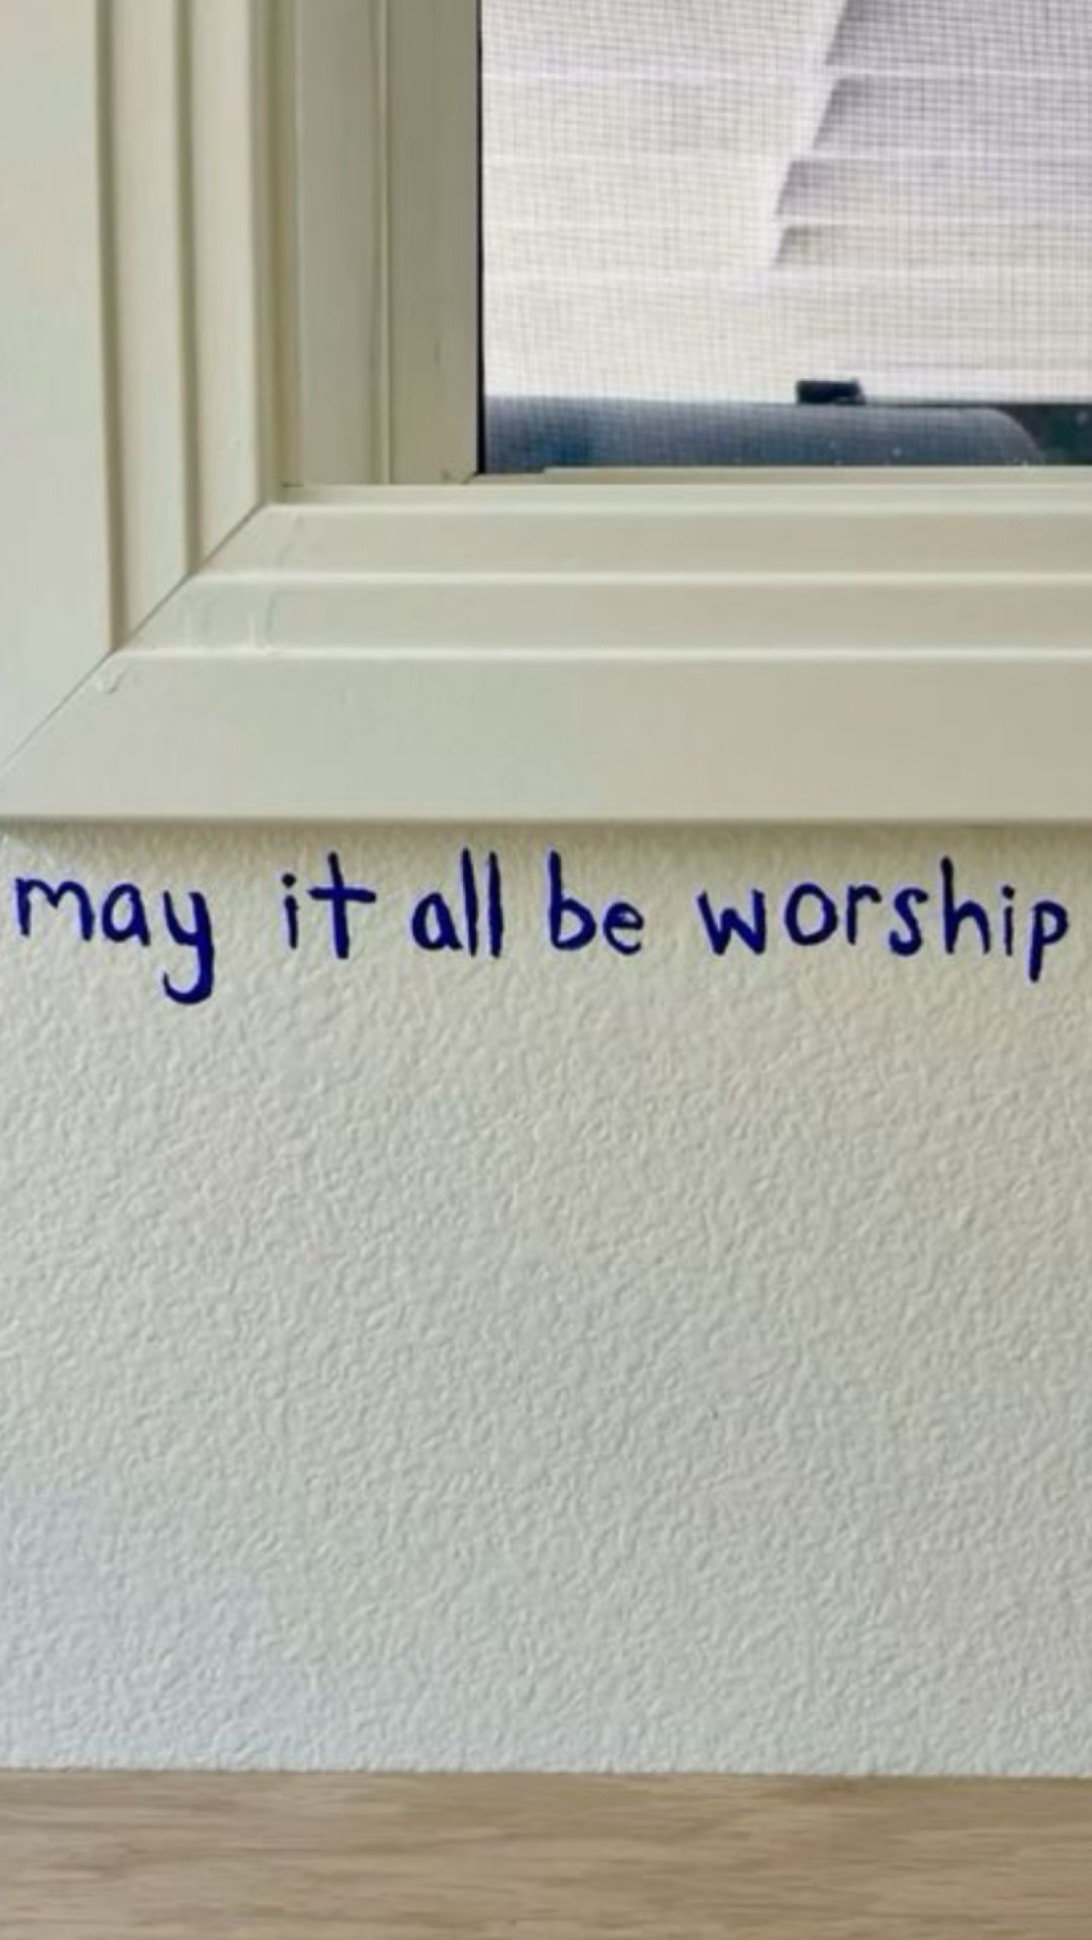 may it all be worship